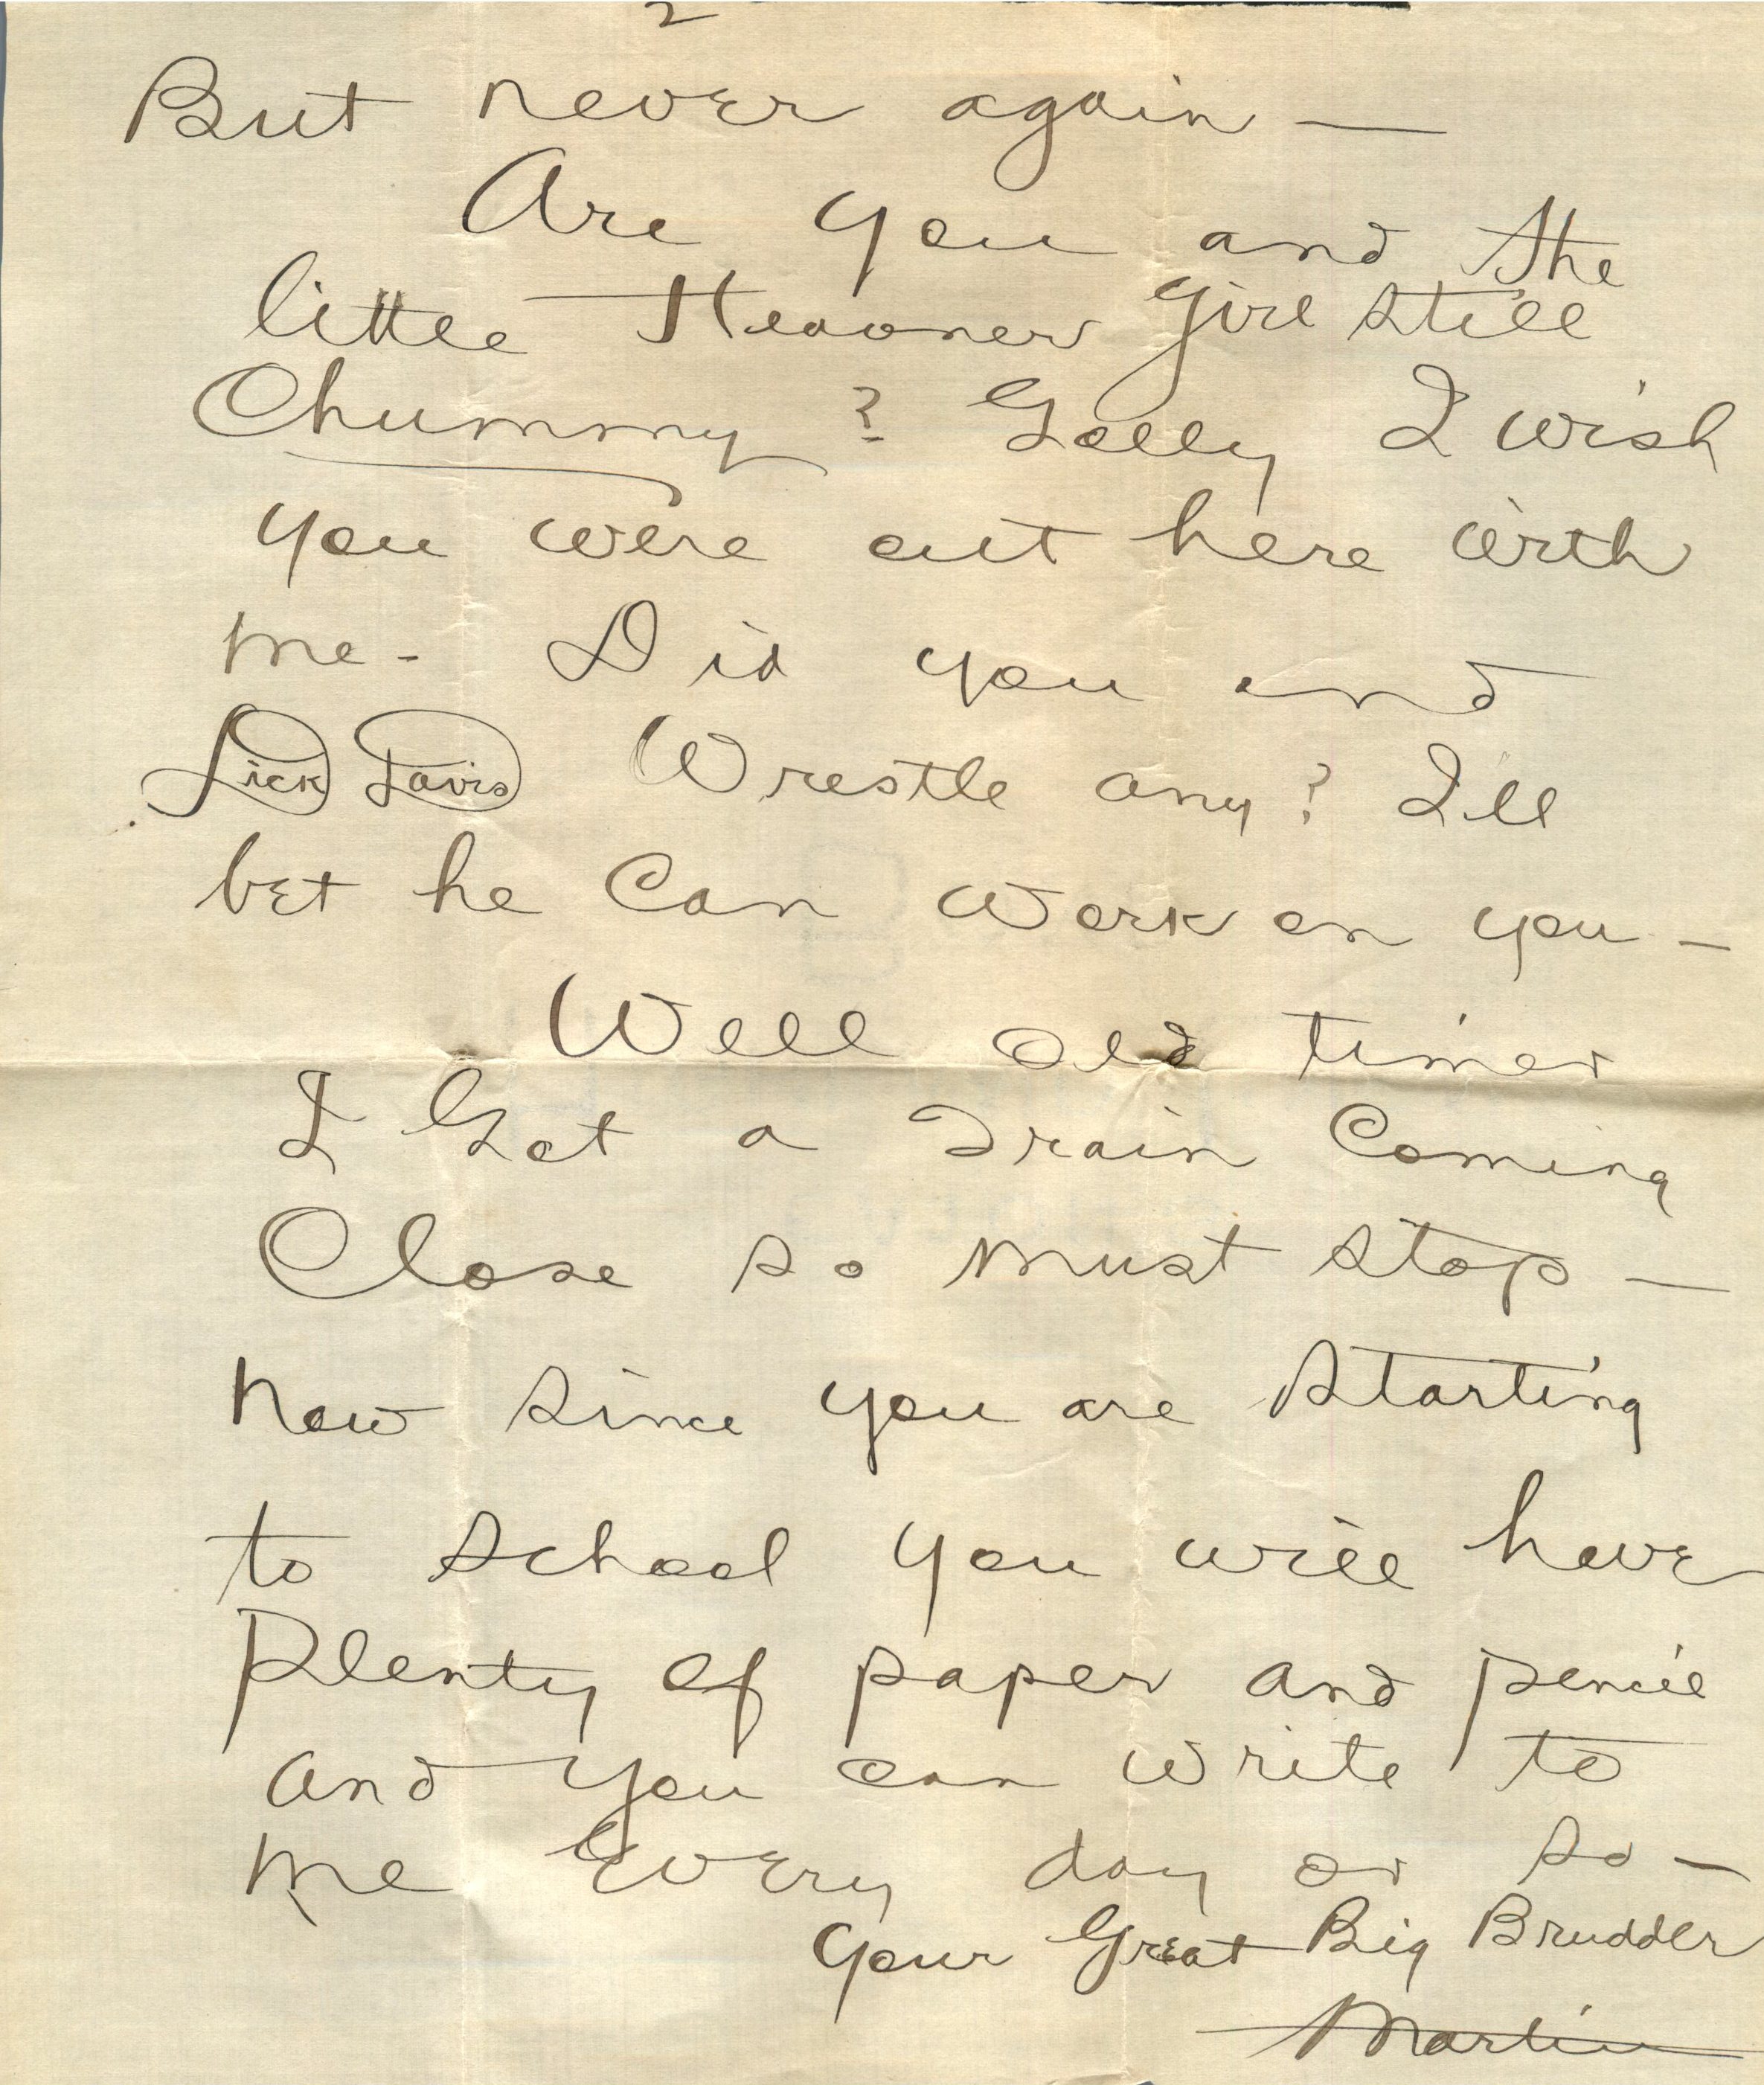 2
But never again —
Are you and the
little Heavner girl still
Chummy ? Golly I wish
you were out here with
me - Did you and
Dick Davis Wrestle any ? I'll
bet he Can work on you —
Well old timer
I Got a Train Coming
Close so must stop —
Now since you are starting
to school you will have
Plenty of paper and pencil
and you can write to
me Every day or so —
Your Great Big Brudder
Martin